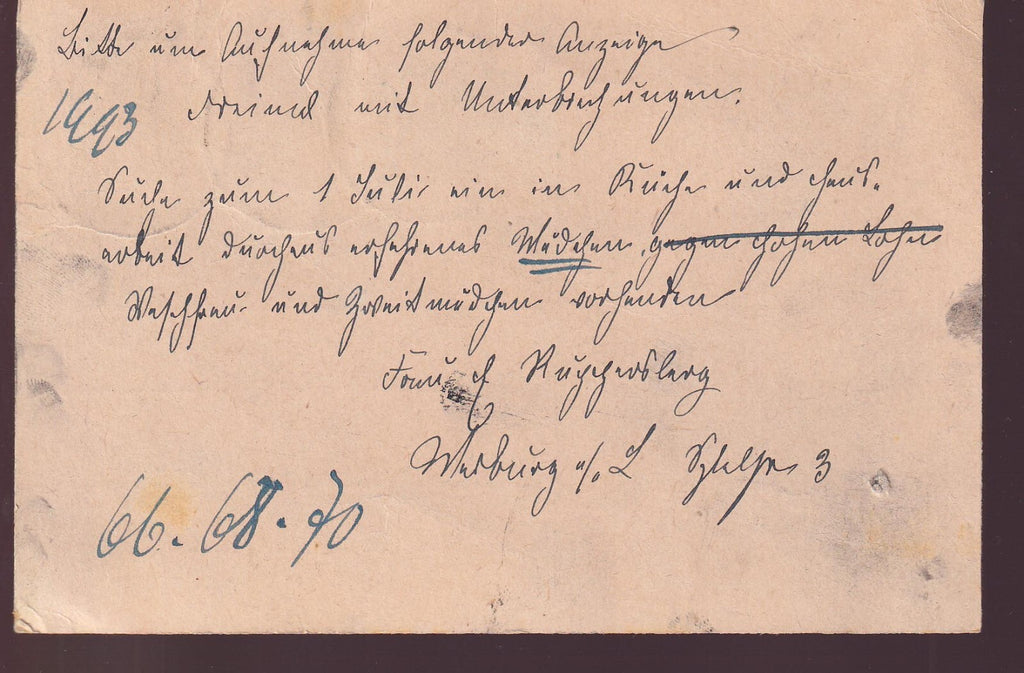 Bitte um Aufnahme folgender Anzeige
1993 dreimal mit Unterbrechungen.
Suche zum 1 Juli ein in Küche und Haus-
arbeit durchaus erfahrenes Mädchen, gegen hohen Lohn
Waschfrau und Zweitmädchen vorhanden
Frau E Ruppersberg
Marburg a/. L 3
66. 68. 70